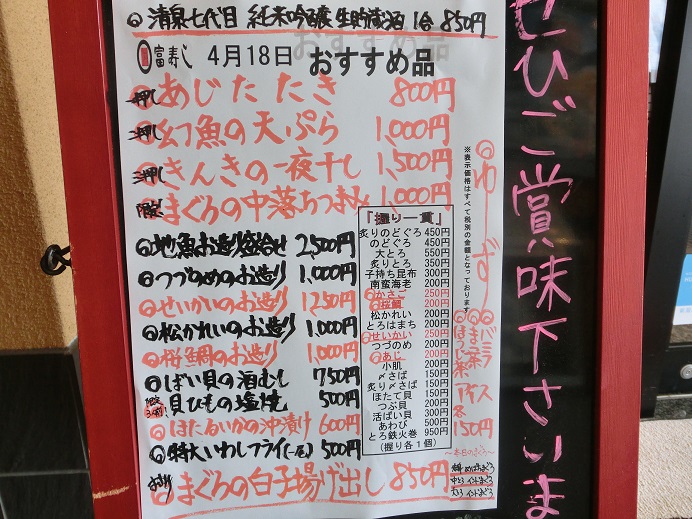 ◎清泉七代目 純米吟醸 生貯蔵酒 1合 850円
富寿し 4月18日 おすすめ品
一押し あじたたき 800円
二押し 幻魚の天ぷら 1,000円
三押し きんきの一夜干し 1,500円
限定 まぐろの中落ちつまみ 1,000円
◎地魚お造り盛合せ 2,500円
◎つづのめのお造り 1,000円
◎せいかいのお造り 1,250円
◎松かれいのお造り 1,000円
◎桜鯛のお造り 1,000円
◎ばい貝の酒むし 750円
貝ひもの塩焼 500円
◎ほたるいかの沖漬け 600円
◎特大いわしフライ(一尾) 500円
まぐろの白子揚げ出し 850円
「握り一貫」
炙りのどぐろ 450円
のどぐろ 450円
大とろ 550円
炙りとろ 350円
子持ち昆布 300円
南蛮海老 200円
◎かさご 250円
◎桜鯛 200円
松かれい 200円
とろはまち 200円
◎せいかい 250円
つづのめ 200円
◎あじ 200円
小肌 200円
〆さば 150円
炙り〆さば 150円
ほたて貝 150円
つぶ貝 200円
活ばい貝 300円
あわび 500円
とろ鉄火巻 950円
(握り各1個)
※表示価格はすべて税別の金額となっております。
◎ゆーずー
◎バニラ
◎ほうじ茶
アイス
各150円
〜本日のまぐろ〜
中とろ インドまぐろ
大とろ インドまぐろ
ぜひご賞味下さいま